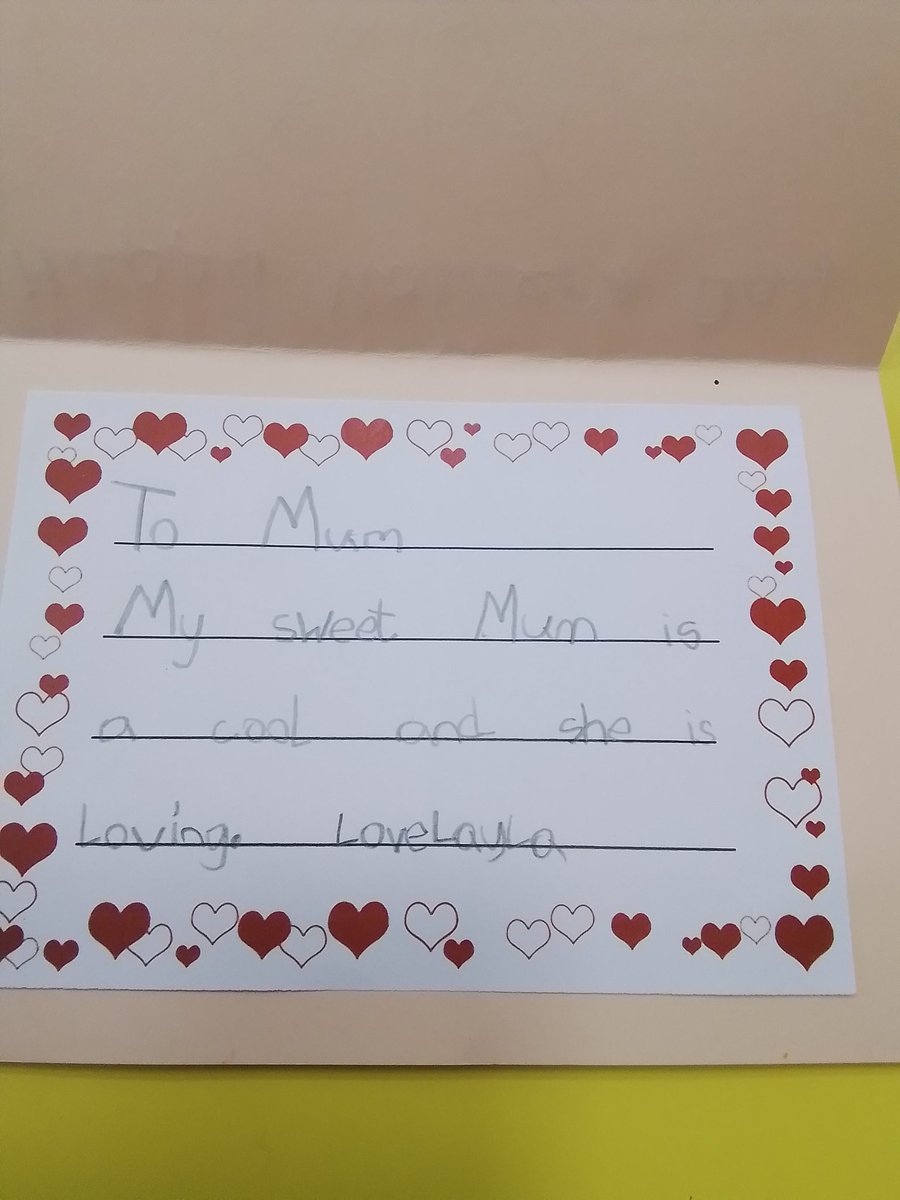 To Mum
My sweet Mum is
a cool and she is
Loving. LoveLayLa